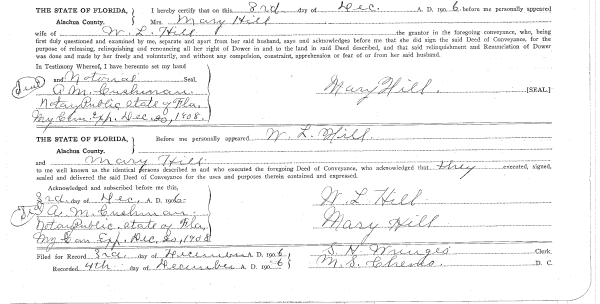 THE STATE OF FLORIDA, Alachua County. I hereby certify that on this 3rd day of Dec. A. D. 190 6 before me personally appeared
Mrs. Mary Hill
wife of W. L. Hill the grantor in the foregoing conveyance, who, being
first duly questioned and examined by me, separate and apart from her said husband, says and acknowledges before me that she did sign the said Deed of Conveyance, for the
purpose of releasing, relinquishing and renouncing all her right of Dower in and to the land in said Deed described, and that said relinquishment and Renunciation of Dower
was done and made by her freely and voluntarily, and without any compulsion, constraint, apprehension or fear of or from her said husband.
In Testimony Whereof, I have hereunto set my hand
and Notorial Seal.
Seal A. M. Cushman Mary Hill. [SEAL]
Notary Public State of Fla.
My Com Exp. Dec. 20, 1908.
THE STATE OF FLORIDA, Alachua County. Before me personally appeared W. L. Hill
and Mary Hill
to me well known as the identical persons described in and who executed the foregoing Deed of Conveyance, who acknowledged that they executed, signed,
sealed and delivered the said Deed of Conveyance for the uses and purposes therein contained and expressed.
Acknowledged and subscribed before me this,
3rd day of Dec, A. D. 190 6 W. L Hill
A. M. Cushman. Mary Hill
Notary Public. State of Fla,
My Com Exp. Dec, 20, 1908
Filed for Record 3rd day of December A. D. 190 6 S. H. Wienges Clerk.
Recorded 4th day of December A. D. 190 6 M. S. D. C.